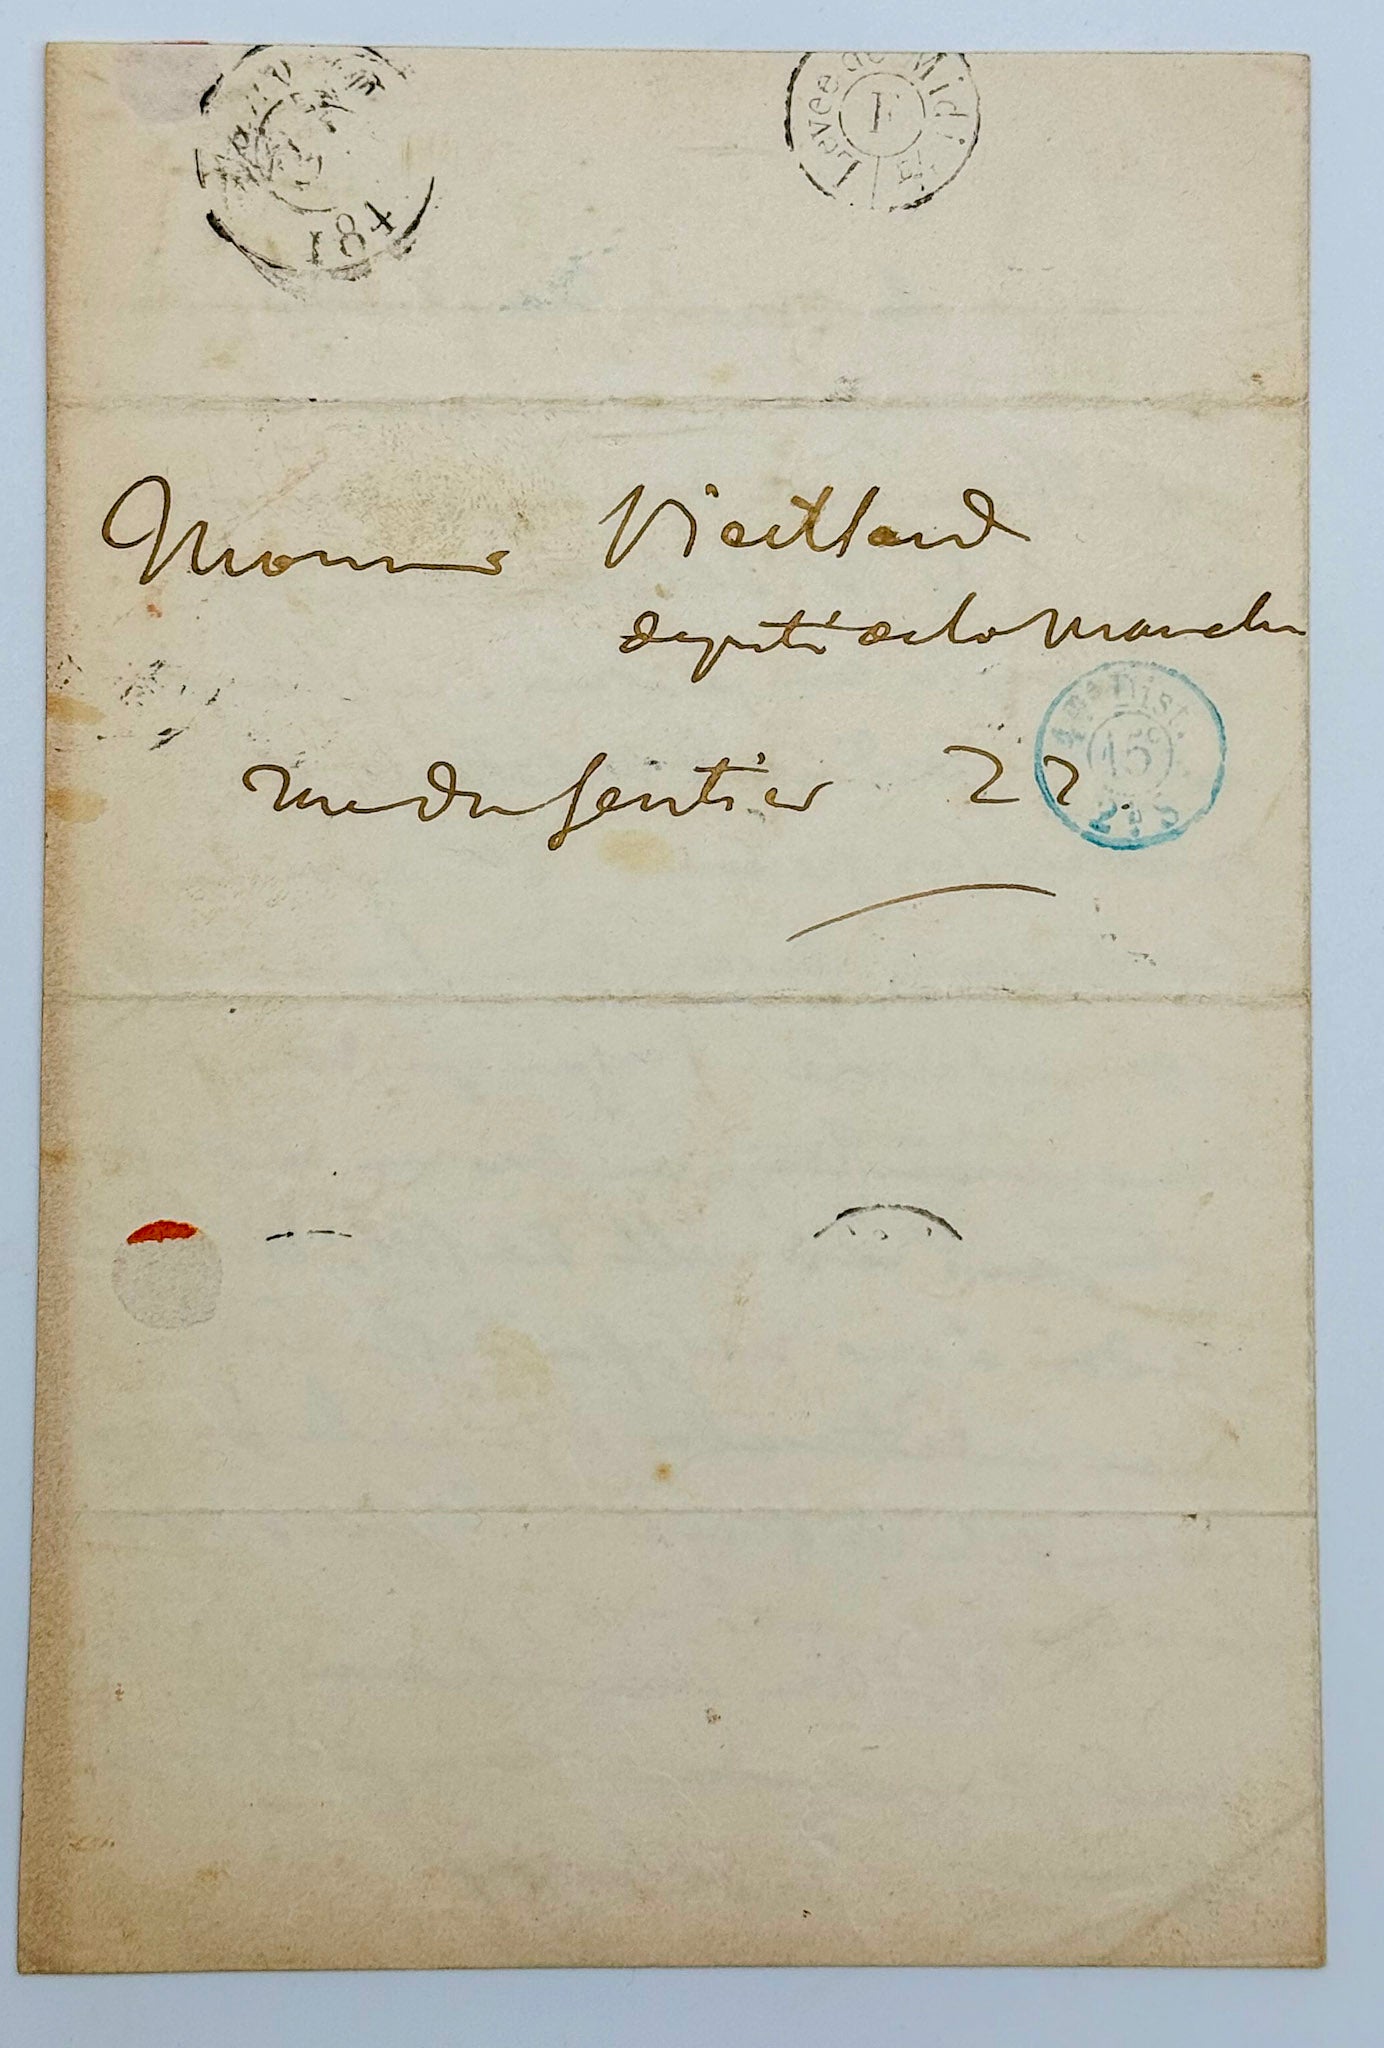 Levée de Midi
F
184
Monsieur Vieillard
député de la Manche
rue du sentier 22
4me Dist.
15